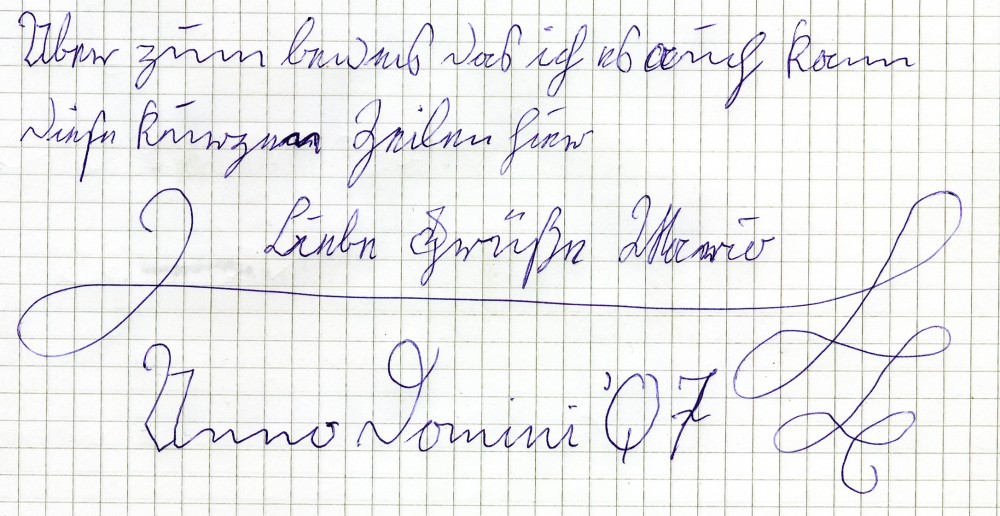 Aber zum beweis das ich es auch kann
diese kurzen Zeilen hier
Liebe Grüße Mario
Anno Domini '07